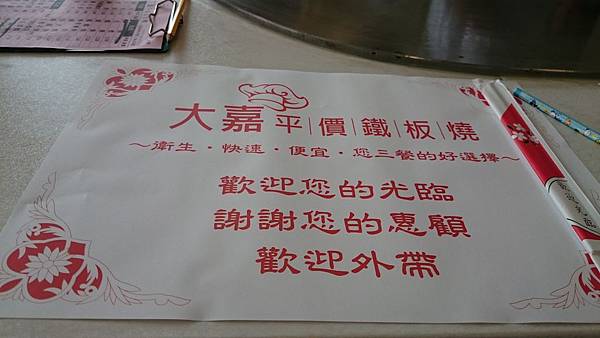 大嘉平|價|鐵|板|燒
～衛生・快速・便宜・您三餐的好選擇～
歡迎您的光臨
謝謝您的惠顧
歡迎外帶